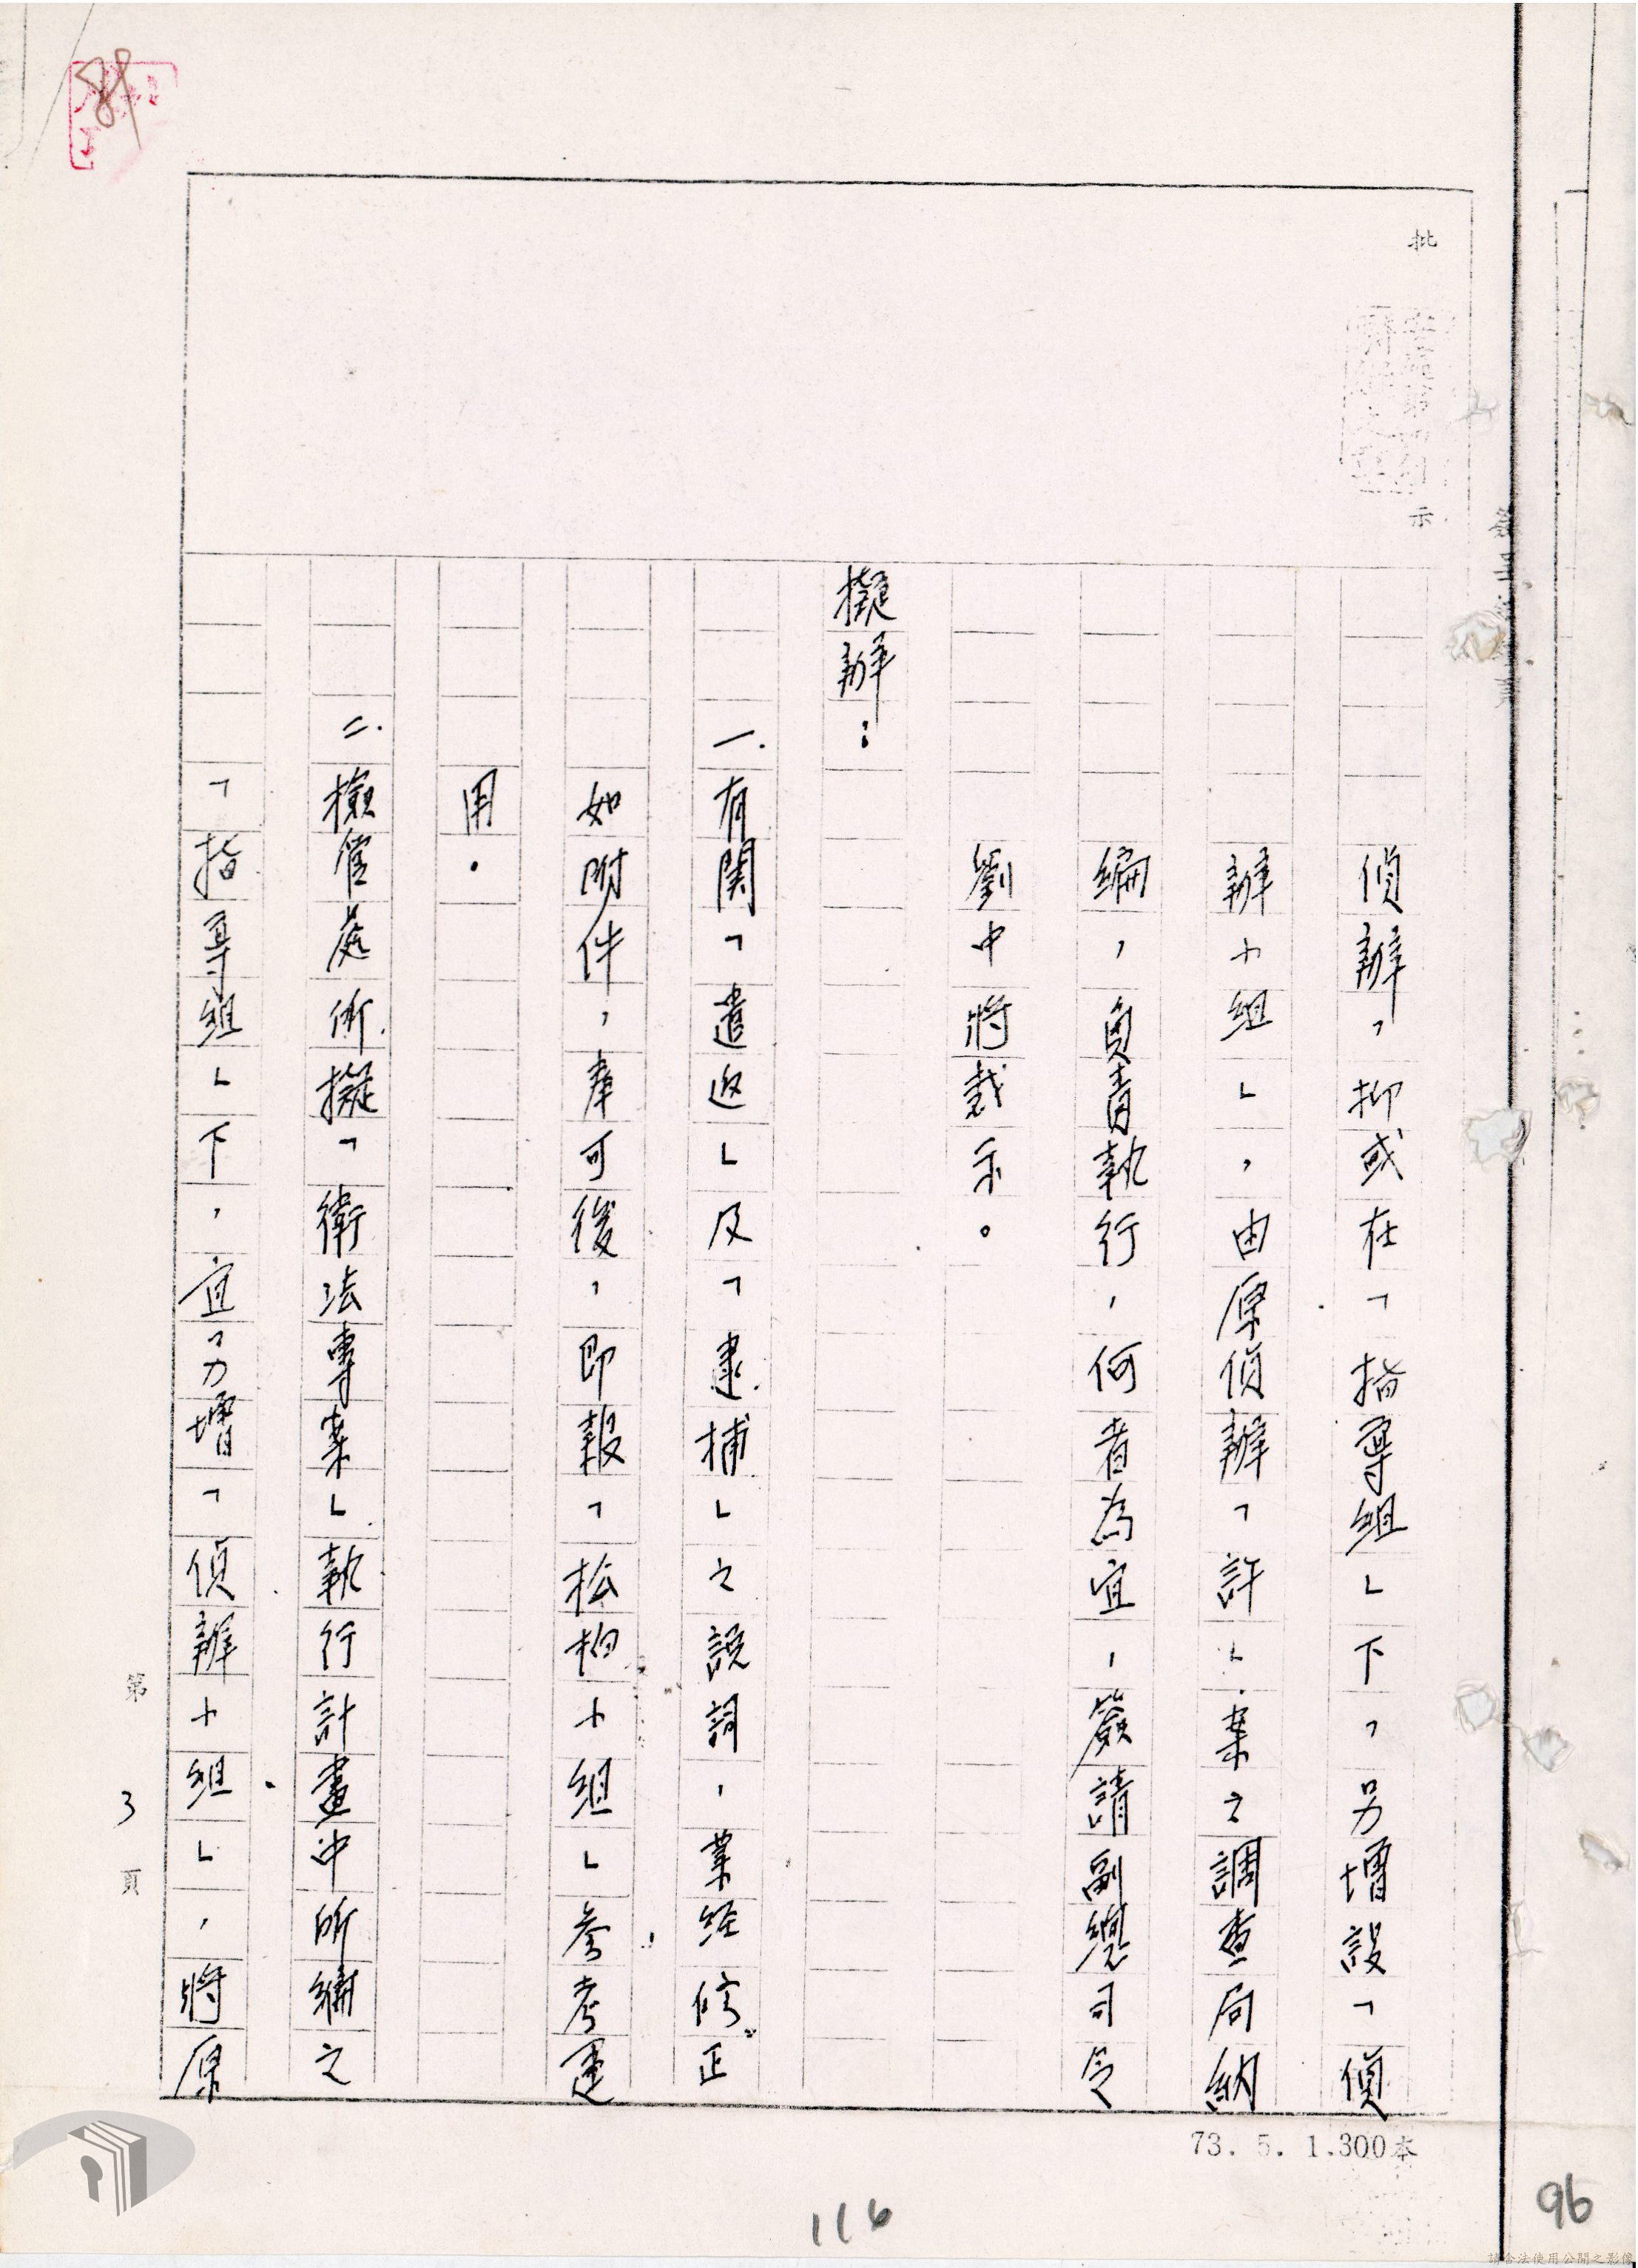 批
示
偵辦，抑或在「指導組」下，另增設「偵
辦小組」，由原偵辦「許」案之調查局納
編，負責執行，何者為宜，簽請副總司令
劉中將裁示。
擬辦：
一.有関「遣返」及「逮捕」之説詞，業経修正
如附件，奉可後，即報「松柏小組」参考運
用.
二.檢管處所擬「衛法專案」執行計畫中所編之
「指導組」下，宜另增「偵辦小組」，將原
第 3 頁
73. 5. 1.300本
116
96
89
請合法使用公開之影像